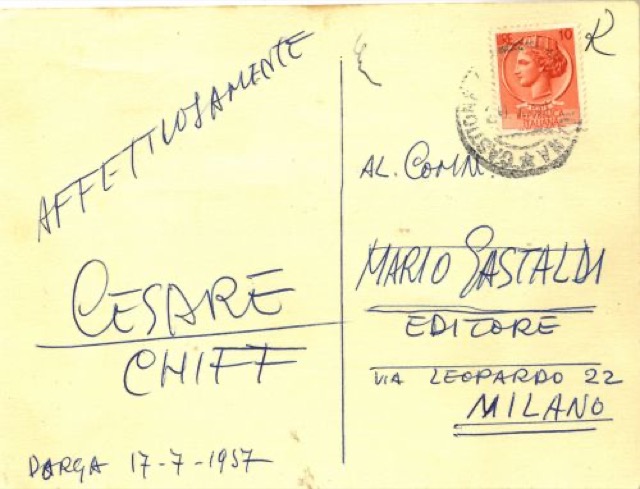 AFFETTUOSAMENTE
CESARE
CHIFF
DARGA 17-7-1957
R
10
REPUBBLICA
ITALIANA
AL. COMM.
MARIO GASTALDI
EDITORE
VIA LEOPARDO 22
MILANO